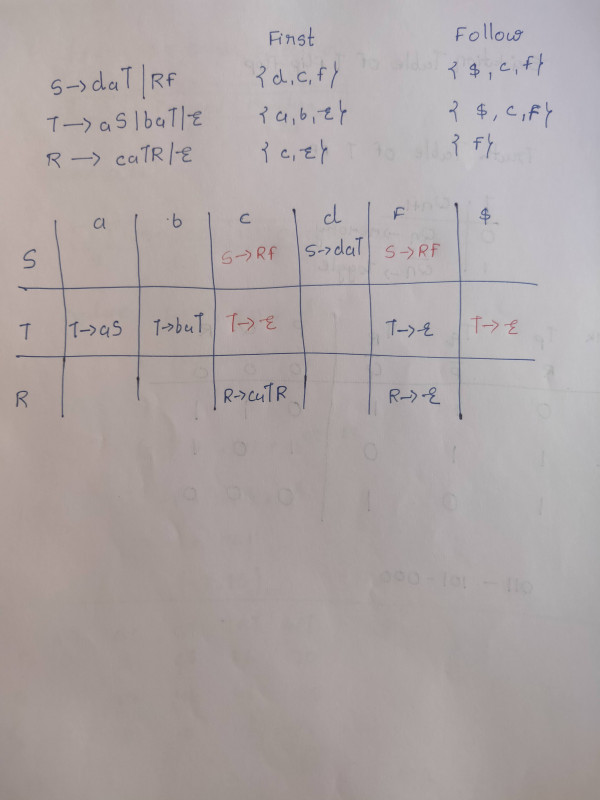 First Follow
S→daT|Rf {d,c,f} {$,c,f}
T→aS|baT|ε {a,b,ε} {$,c,F}
R→caTR|ε {c,ε} {f}
a b c d F $
S S→Rf S→daT S→Rf
T T→aS T→baT T→ε T→ε T→ε
R R→caTR R→ε